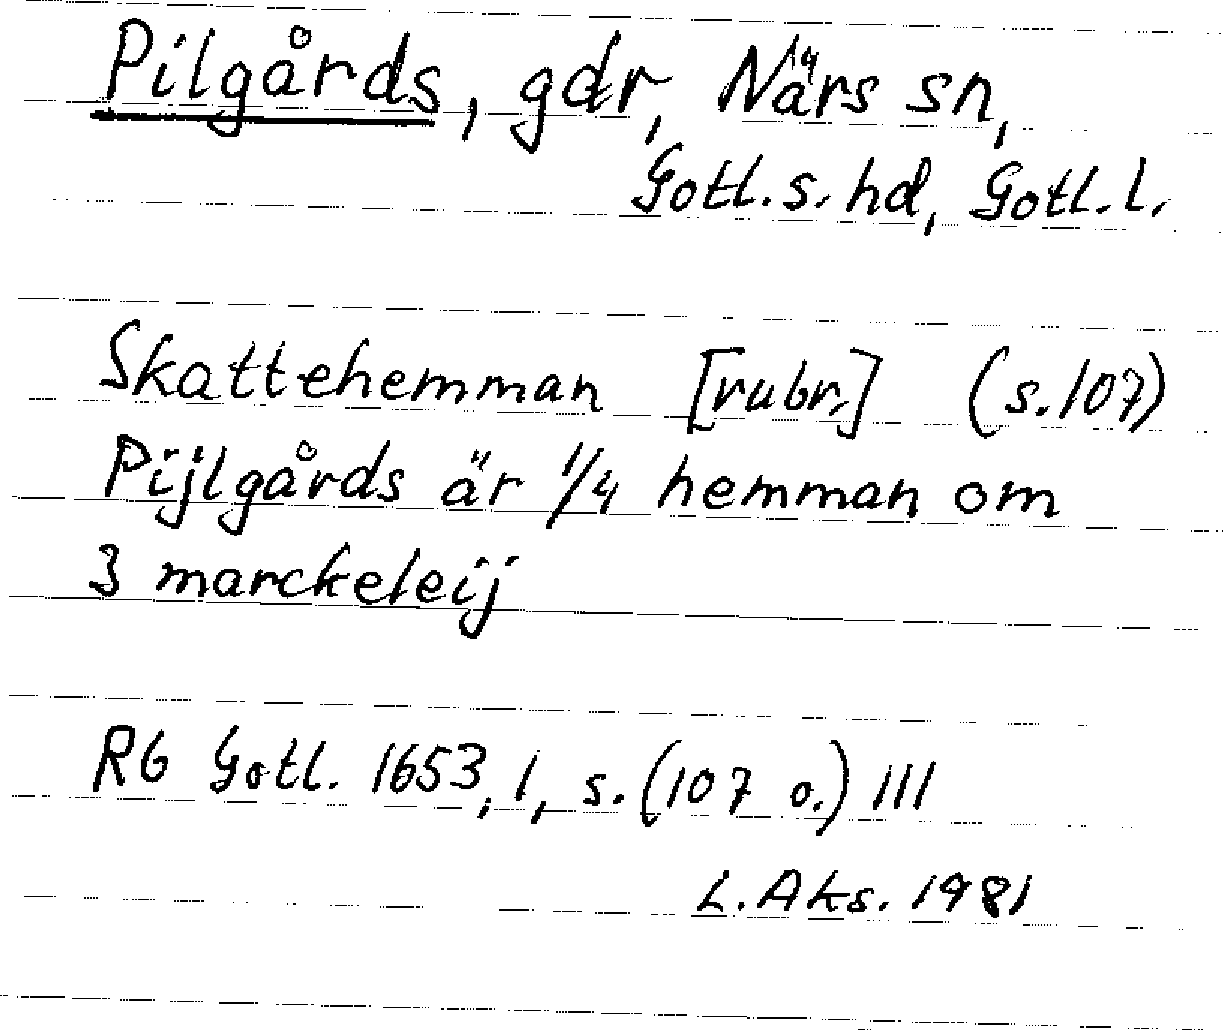 Pilgårds, gdr, Närs sn,
Gotl. s. hd, Gotl. l.
Skattehemman [rubr.] (s. 107)
Pijlgårds är 1/4 hemman om
3 marckeleij
RG Gotl. 1653, 1, s. (107 o.) 111
L. Aks. 1981